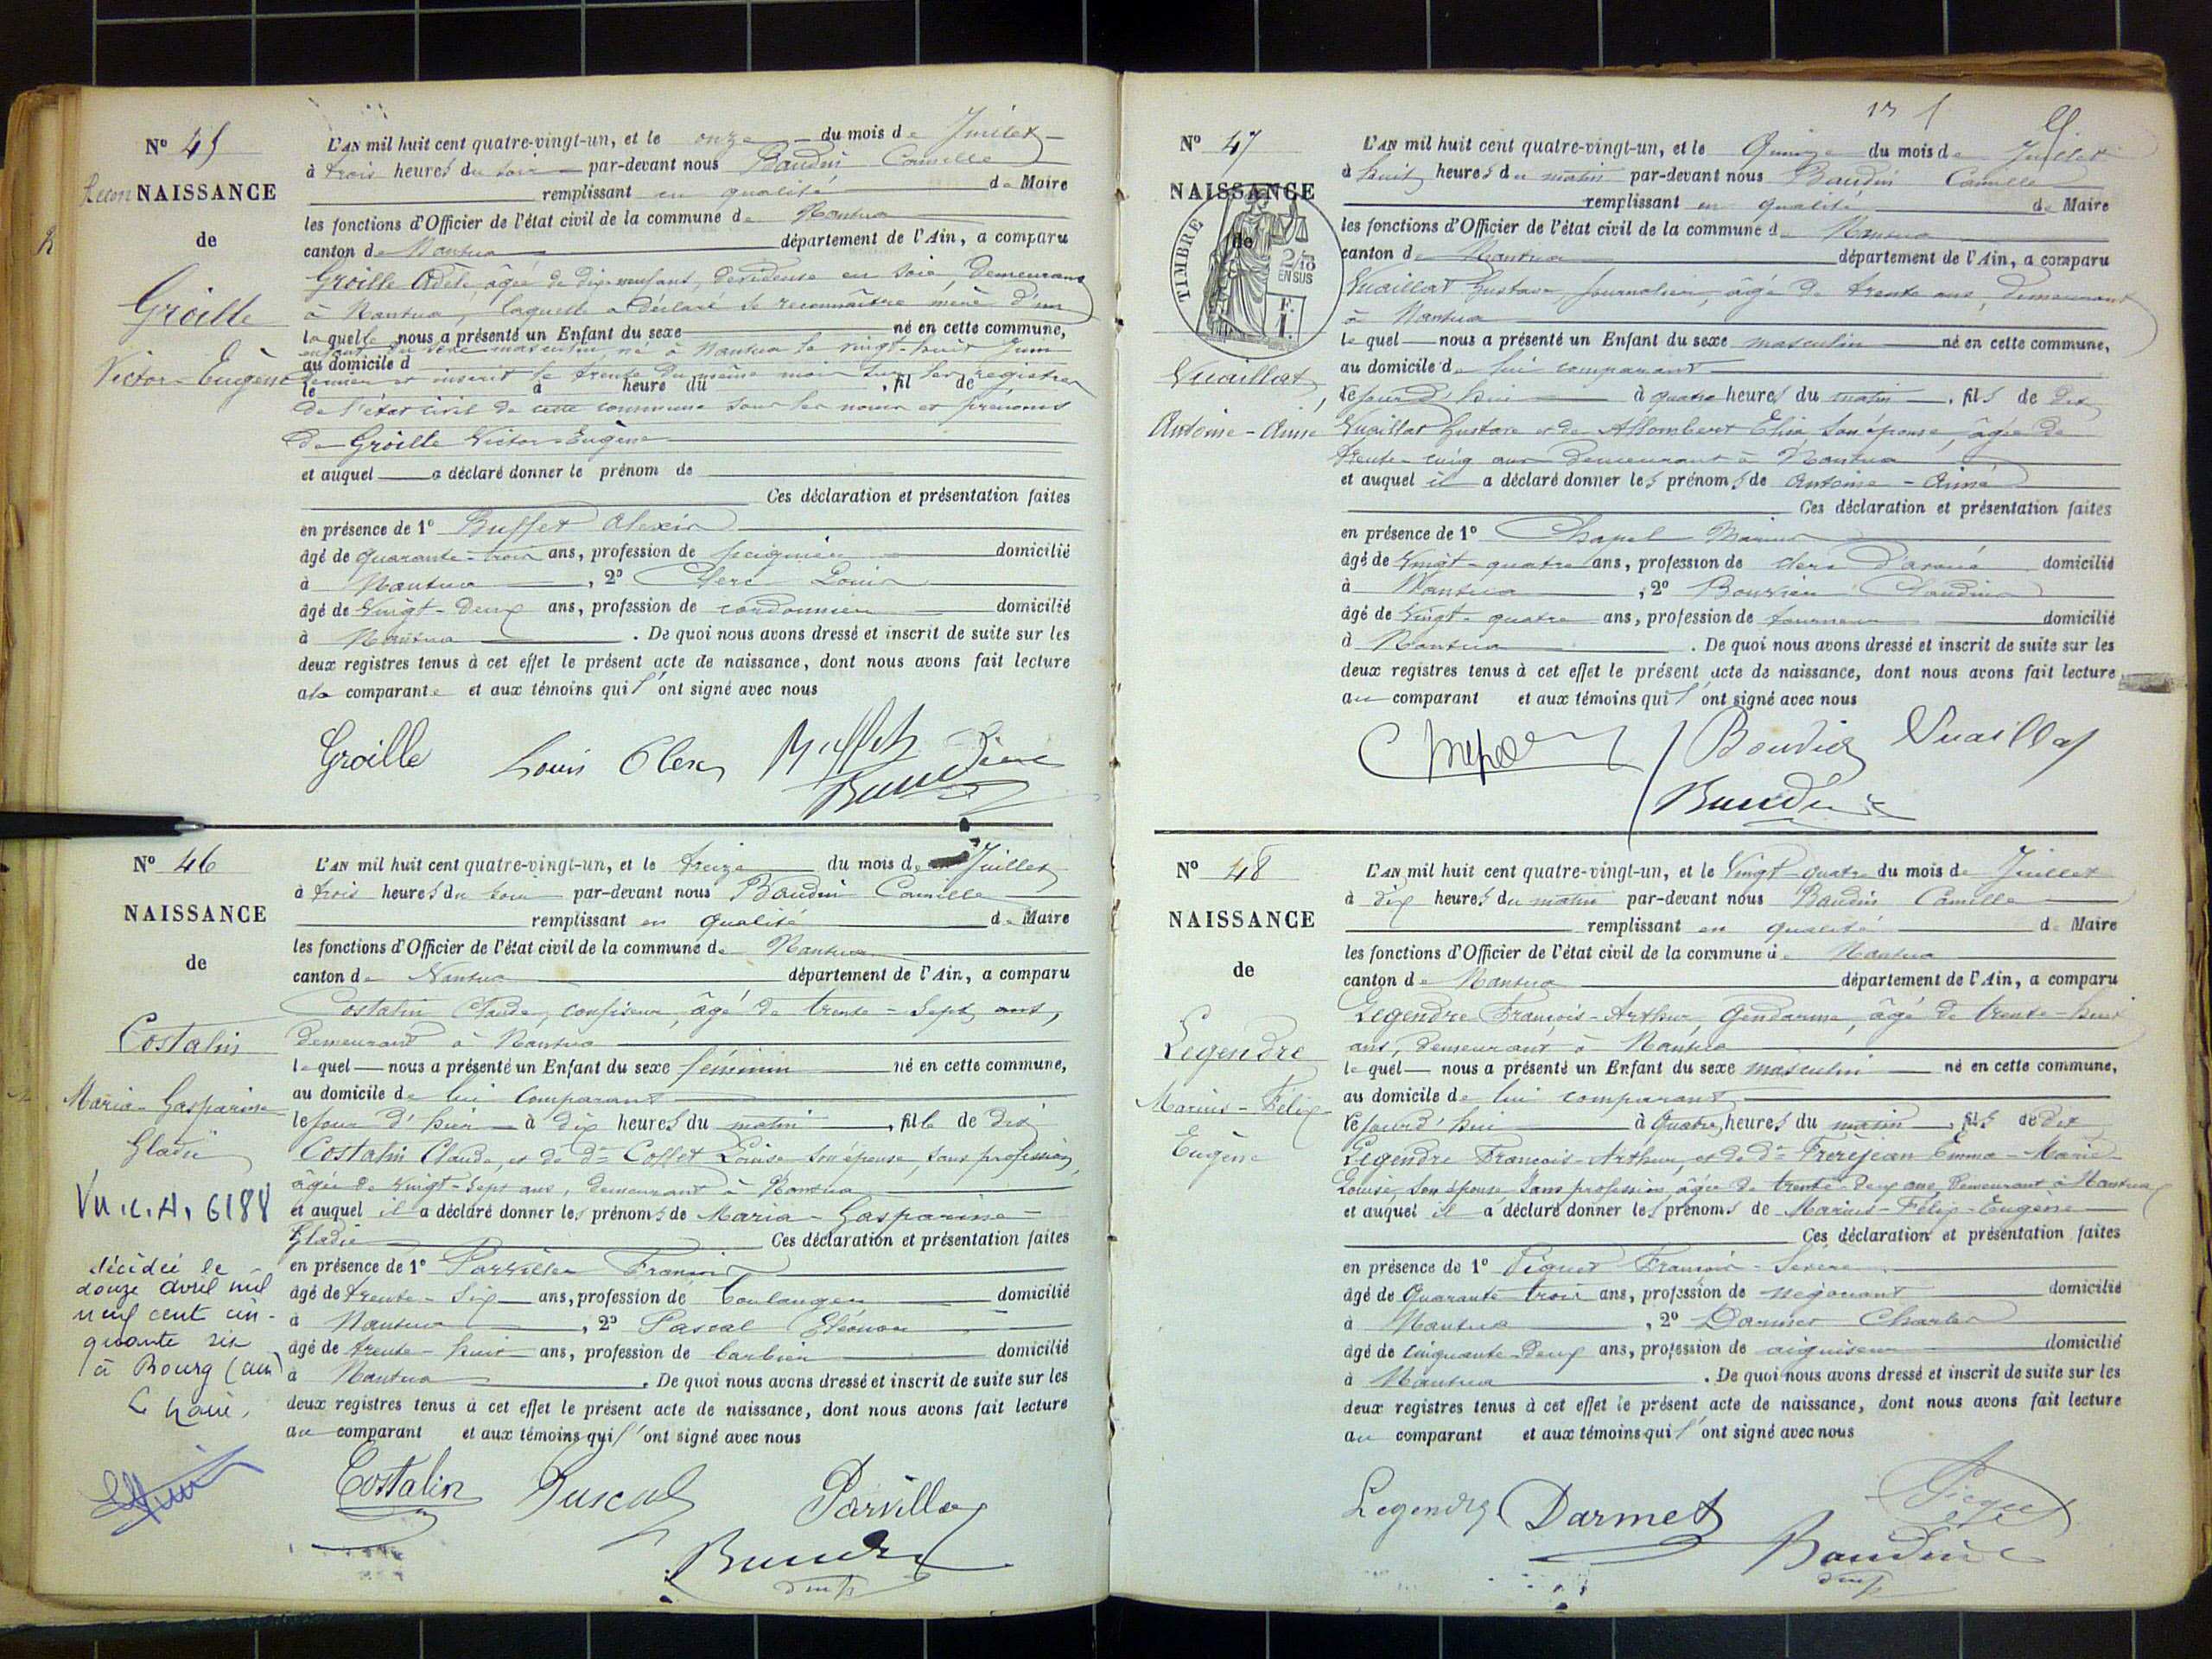 N° 45
Recon NAISSANCE
de
Groille
Victor-Eugène
L'AN mil huit cent quatre-vingt-un, et le onze du mois de Juillet
à trois heures du soir par-devant nous Baudin Camille
remplissant en qualité de Maire
les fonctions d'Officier de l'état civil de la commune de Nantua
canton de Nantua département de l'Ain, a comparu
Groille Adèle âgée de dix-neuf ans, dévideuse en soie, demeurant
à Nantua, laquelle a déclaré se reconnaître mère d'un
laquelle nous a présenté un Enfant du sexe né en cette commune,
enfant du sexe masculin, né à Nantua le vingt-huit Juin
au domicile d
dernier et inscrit le trente du même mois sur les registres
le à heure du , fil de
de l'état civil de cette commune sous les noms et prénoms
de Groille Victor-Eugène
et auquel a déclaré donner le prénom de
Ces déclaration et présentation faites
en présence de 1° Buffet Alexis
âgé de quarante-trois ans, profession de peignier domicilié
à Nantua, 2° Clerc Louis
âgé de vingt-deux ans, profession de cordonnier domicilié
à Nantua. De quoi nous avons dressé et inscrit de suite sur les
deux registres tenus à cet effet le présent acte de naissance, dont nous avons fait lecture
à la comparante et aux témoins qui l'ont signé avec nous
Groille Louis Clerc Buffet
Baudin
N° 46
NAISSANCE
de
Costalin
Maria-Gasparine
Gladie
Vu.C.A. 6188
décédée le
douze avril mil
neuf cent cin-
quante six
à Bourg (ain)
Le Maire,
L'AN mil huit cent quatre-vingt-un, et le treize du mois de Juillet
à trois heures du soir par-devant nous Baudin Camille
remplissant en qualité de Maire
les fonctions d'Officier de l'état civil de la commune de Nantua
canton de Nantua département de l'Ain, a comparu
Costalin Claude, confiseur, âgé de trente-sept ans,
demeurant à Nantua
lequel nous a présenté un Enfant du sexe féminin né en cette commune,
au domicile de lui comparant
le jour d'hier à dix heures du matin, fille de dit
Costalin Claude, et de de Collet Louise son épouse, sans profession,
âgée de vingt-sept ans, demeurant à Nantua
et auquel il a déclaré donner les prénoms de Maria-Gasparine-
Gladie Ces déclaration et présentation faites
en présence de 1° Parviller François
âgé de trente-six ans, profession de boulanger domicilié
à Nantua, 2° Pascal Eléonor
âgé de trente-huit ans, profession de barbier domicilié
à Nantua. De quoi nous avons dressé et inscrit de suite sur les
deux registres tenus à cet effet le présent acte de naissance, dont nous avons fait lecture
au comparant et aux témoins qui l'ont signé avec nous
Costalin Pascal Parviller
Baudin
N° 47
NAISSANCE
de
TIMBRE
2/10
EN SUS
Vuaillat
Antoine-Aimé
L'AN mil huit cent quatre-vingt-un, et le Quinze du mois de Juillet
à huit heures du matin par-devant nous Baudin Camille
remplissant en qualité de Maire
les fonctions d'Officier de l'état civil de la commune de Nantua
canton de Nantua département de l'Ain, a comparu
Vuaillat Gustave, journalier, âgé de trente ans, demeurant
à Nantua
lequel nous a présenté un Enfant du sexe masculin né en cette commune,
au domicile de lui comparant
le jour d'hui à quatre heures du matin, fils de dit
Vuaillat Gustave et de Allombert Elisa, son épouse, âgée de
trente-cinq ans demeurant à Nantua
et auquel il a déclaré donner les prénoms de Antoine-Aimé
Ces déclaration et présentation faites
en présence de 1° Chapel Marius
âgé de vingt-quatre ans, profession de clerc d'avoué domicilié
à Nantua, 2° Bouvier Claudius
âgé de vingt-quatre ans, profession de tourneur domicilié
à Nantua. De quoi nous avons dressé et inscrit de suite sur les
deux registres tenus à cet effet le présent acte de naissance, dont nous avons fait lecture
au comparant et aux témoins qui l'ont signé avec nous
Bouvier Vuaillat
Baudin
N° 48
NAISSANCE
de
Legendre
Marius-Félix-
Eugène
L'AN mil huit cent quatre-vingt-un, et le Vingt-quatre du mois de Juillet
à dix heures du matin par-devant nous Baudin Camille
remplissant en qualité de Maire
les fonctions d'Officier de l'état civil de la commune de Nantua
canton de Nantua département de l'Ain, a comparu
Legendre François-Arthur, Gendarme, âgé de trente-huit
ans, demeurant à Nantua
lequel nous a présenté un Enfant du sexe masculin né en cette commune,
au domicile de lui comparant
le jourd'hui à Quatre heures du matin, fils de dit
Legendre François-Arthur, et de de Frèrejean Emma-Marie-
Louise, son épouse, sans profession, âgée de trente-deux ans, demeurant à Nantua
et auquel il a déclaré donner les prénoms de Marius-Félix-Eugène
Ces déclaration et présentation faites
en présence de 1° Piquet François-Sévère
âgé de Quarante-trois ans, profession de négociant domicilié
à Nantua, 2° Darmet Charles
âgé de cinquante-deux ans, profession de aiguiseur domicilié
à Nantua. De quoi nous avons dressé et inscrit de suite sur les
deux registres tenus à cet effet le présent acte de naissance, dont nous avons fait lecture
au comparant et aux témoins qui l'ont signé avec nous
Legendre Darmet Piquet
Baudin